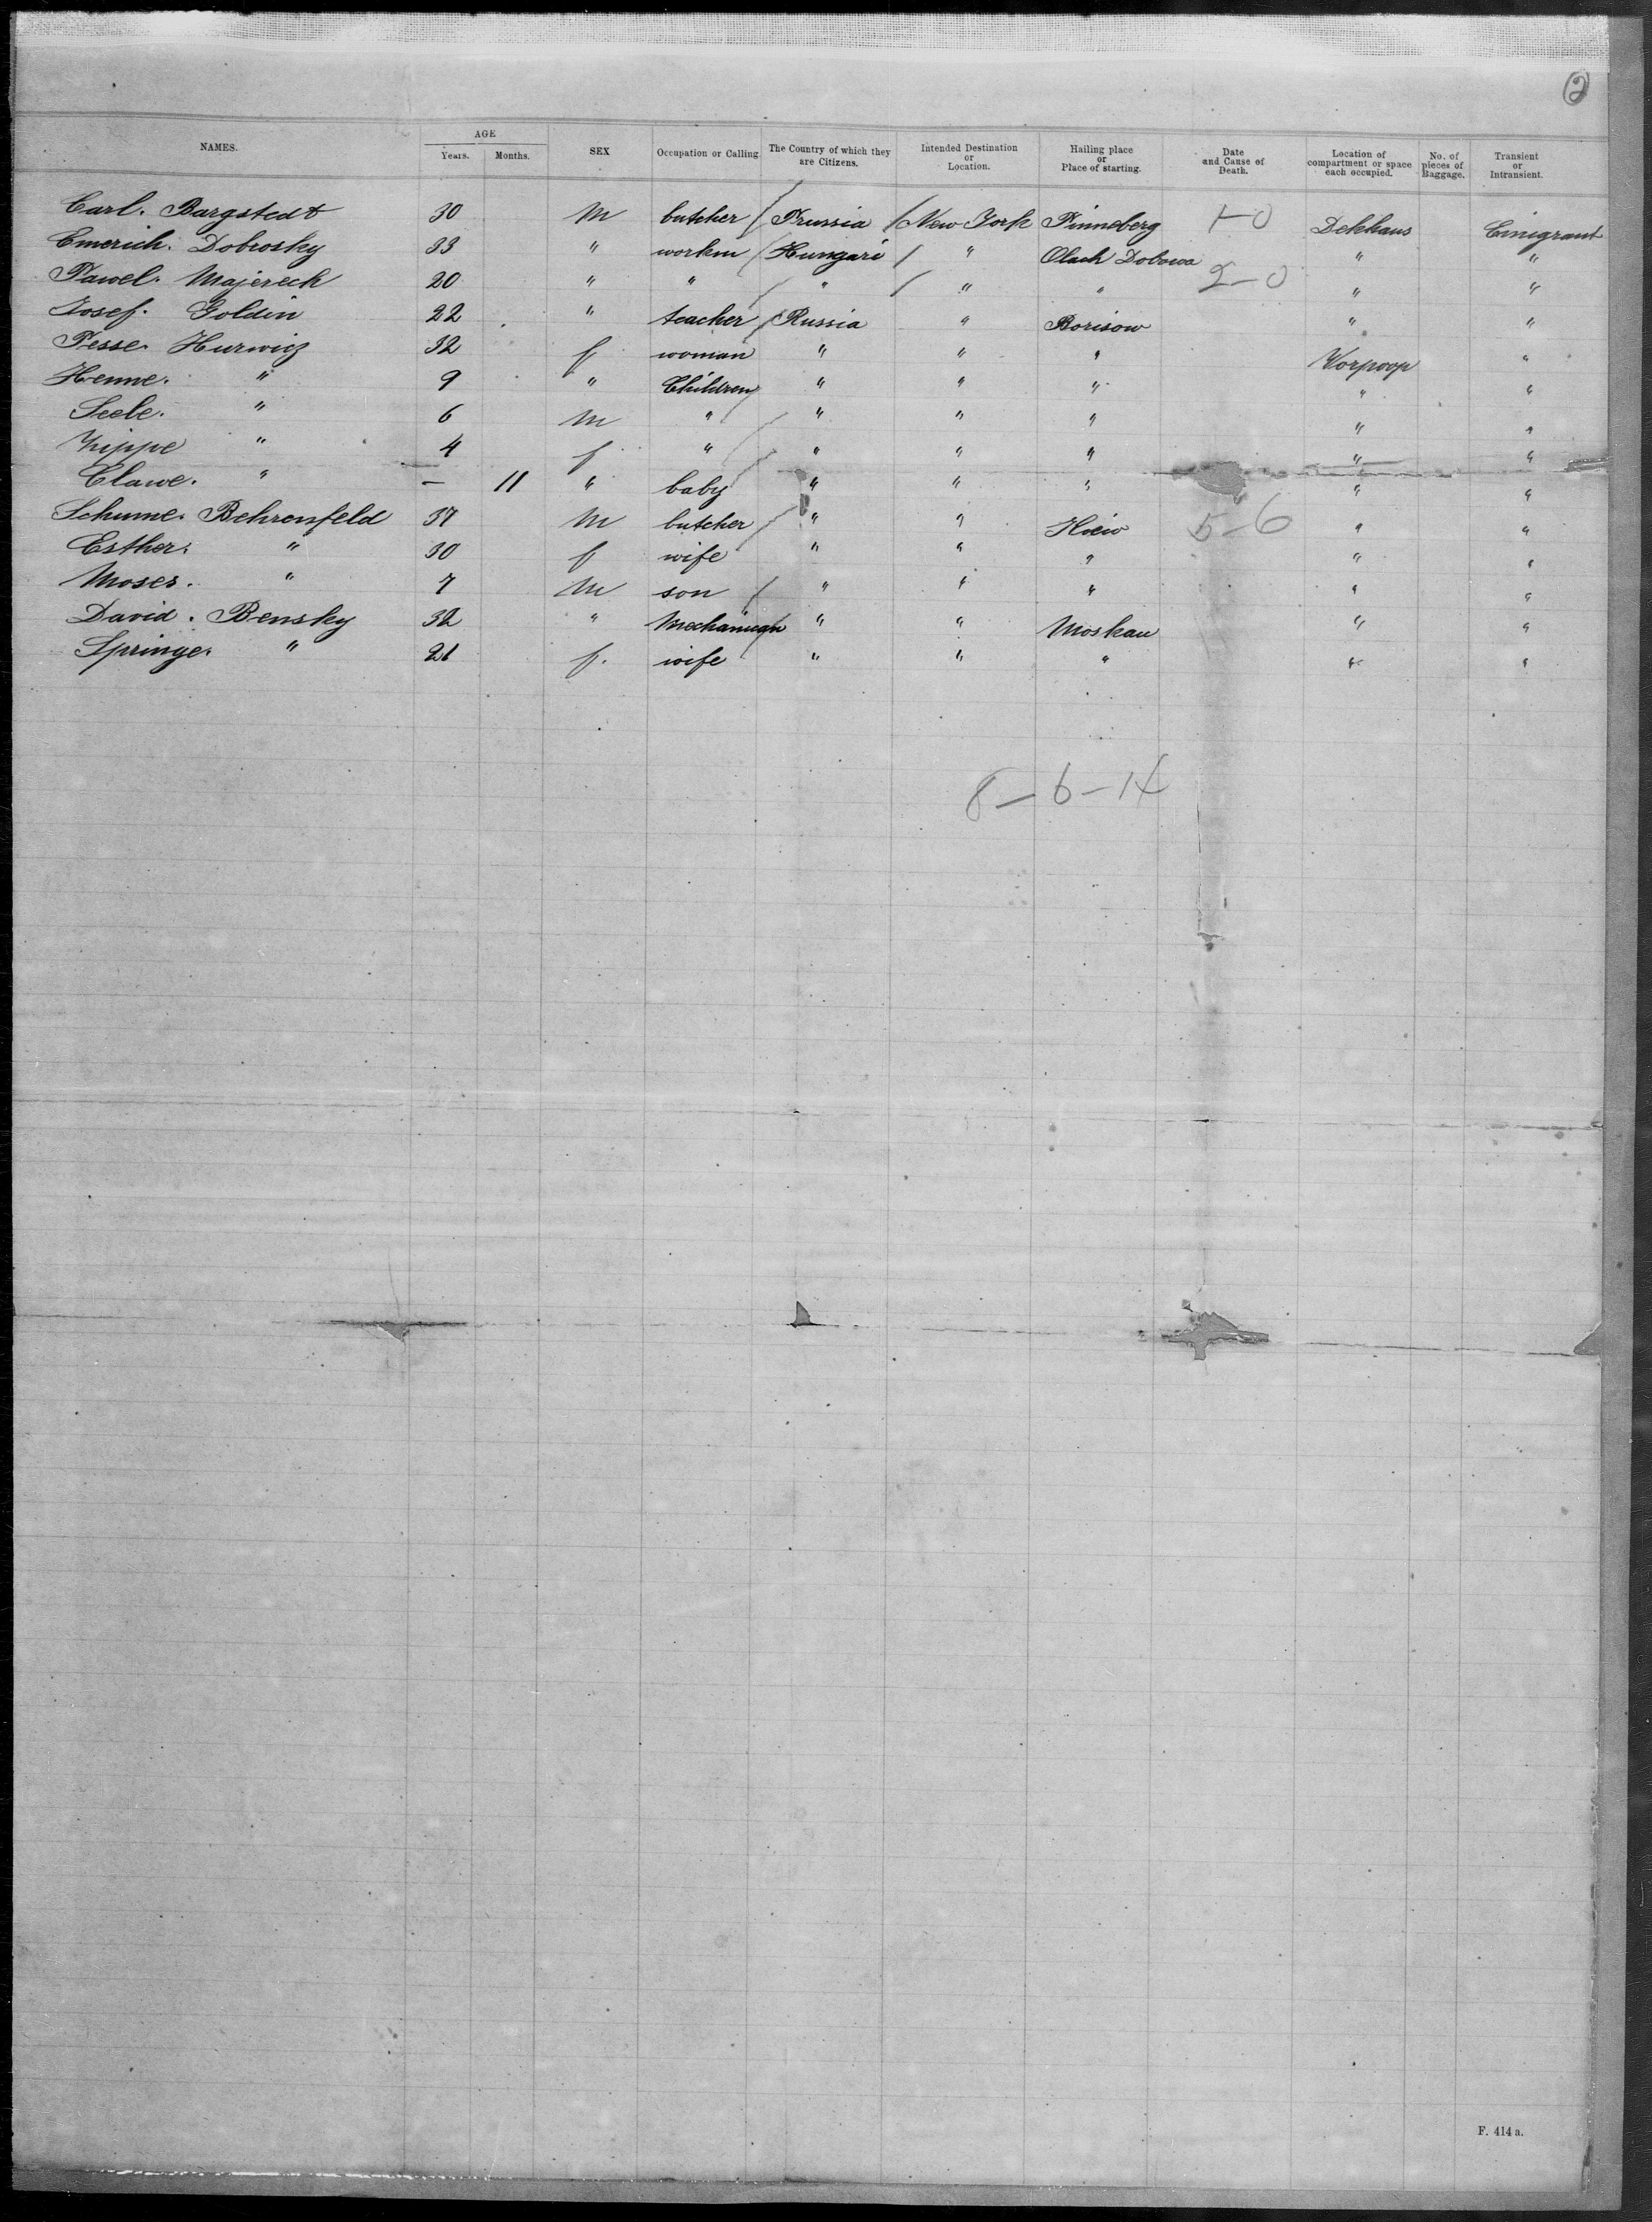 2
NAMES. AGE Years. Months. SEX Occupation or Calling. The Country of which they are Citizens. Intended Destination or Location. Hailing place or Place of starting. Date and Cause of Death. Location of compartment or space each occupied. No. of pieces of Baggage. Transient or Intransient.
Carl. Bargstedt 30 M butcher / Prussia / New York Pinneberg 1-0 Dekhaus Emigrant
Emerich. Dobrosky 33 " workm / Hungari / " Olach Dobowa " "
Pawel. Majerech 20 " " / " / " " 2-0 " "
Josef. Goldin 22 " teacher / Russia " Borisow " "
Pesse. Hurwicz 32 f woman " " " Vorpoop "
Henne. " 9 " Children " " " " "
Seele. " 6 M " " " " " "
Zippe " 4 f " " " " " "
Clawe. " — 11 " baby " " " " "
Schume. Behrenfeld 37 M butcher / " " Kiew 5-6 " "
Esther. " 30 f wife " " " " "
Moses. " 7 M son / " " " " "
David. Bensky 32 " Mechanican " " Moskau " "
Springe. " 21 f. wife " " " " "
8-6-14
F. 414 a.